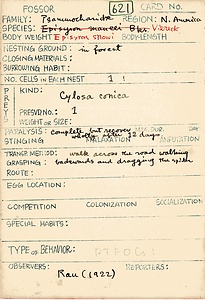 FOSSOR 621 CARD NO.
FAMILY: Psammocharidae REGION: N. America
SPECIES: Episyron maneei Bks. Viereck
BODY WEIGHT Episyron snowi BODY-LENGTH
NESTING GROUND: in forest
CLOSING MATERIALS:
BURROWING HABIT:
NO. CELLS IN EACH NEST 1
PREYS
KIND:
Cyclosa conica
PRESV'D NO.: 1
WEIGHT OR SIZE:
PARALYSIS: complete but recover DUR. DAY
STINGING wholly after 32 days MALAXATION AMPUTATION
TRANSP. METHOD: walk across the road walking
GRASPING: backwards and dragging the spider
ROUTE:
EGG LOCATION:
COMPETITION COLONIZATION SOCIALIZATION
SPECIAL HABITS:
TYPE OF BEHAVIOR:
OBSERVERS: REPORTERS:
Rau (1922)